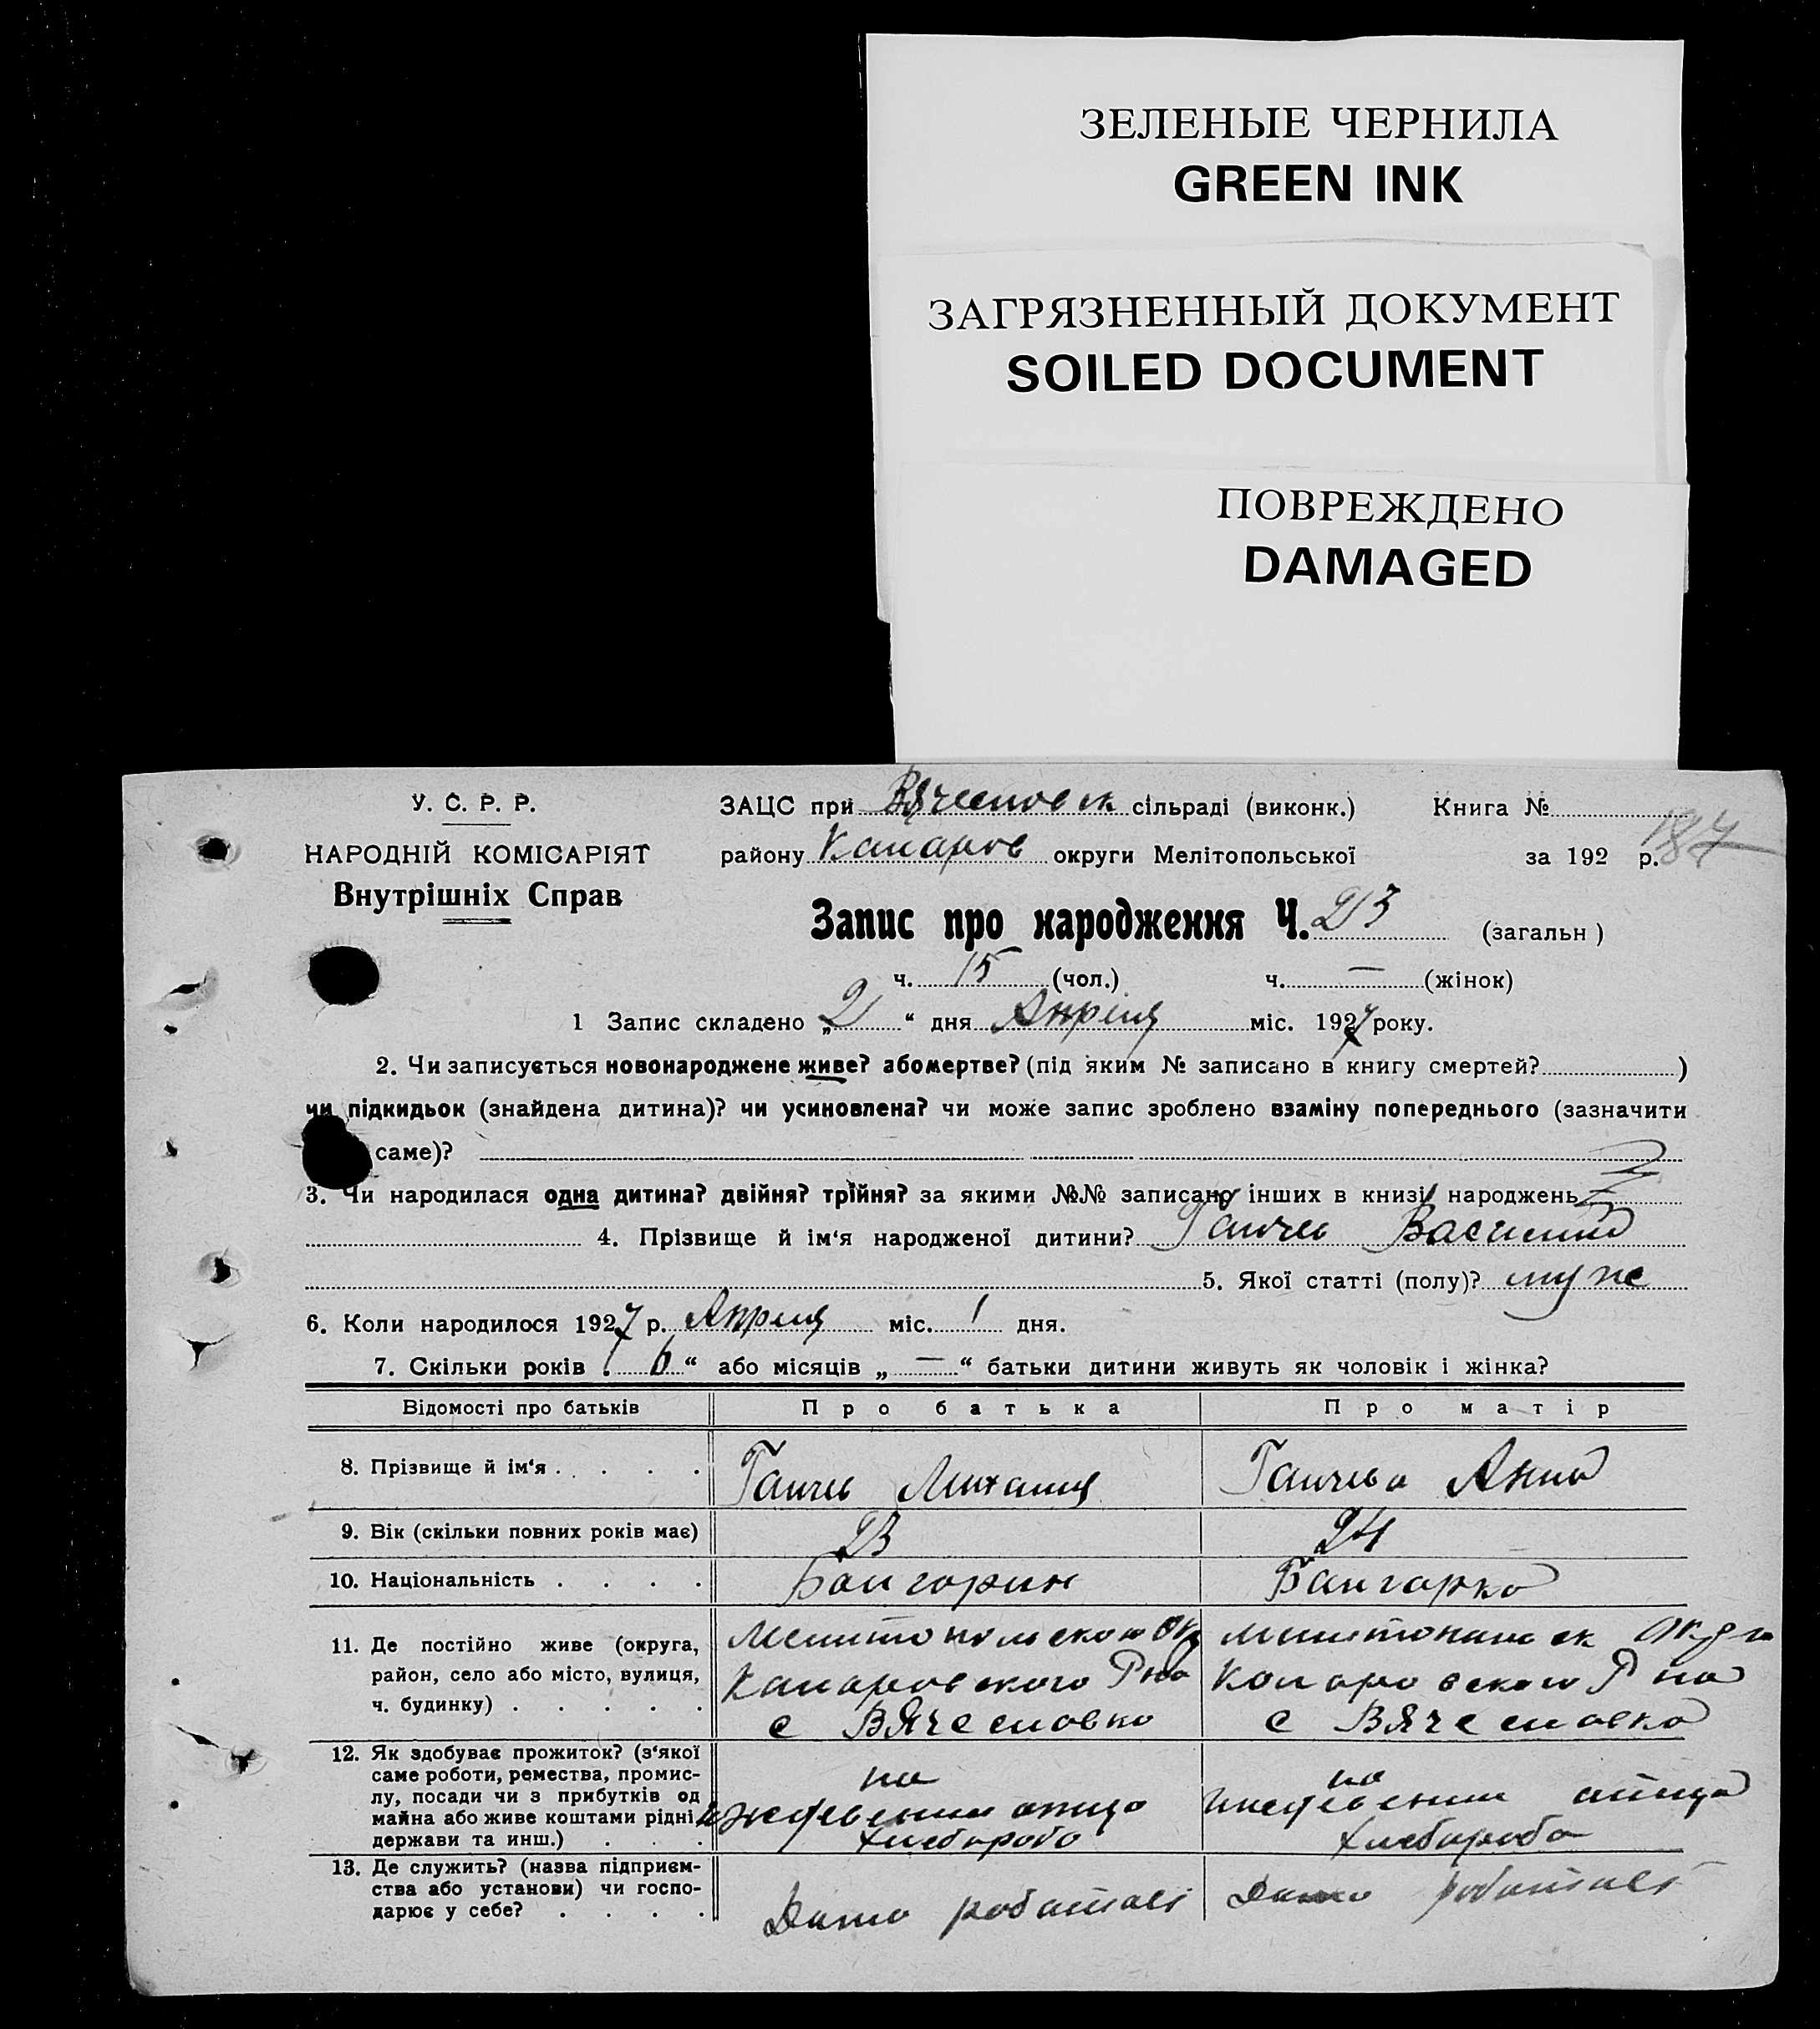 ЗЕЛЕНЫЕ ЧЕРНИЛА
GREEN INK
ЗАГРЯЗНЕННЫЙ ДОКУМЕНТ
SOILED DOCUMENT
ПОВРЕЖДЕНО
DAMAGED
У. С. Р. Р.
НАРОДНІЙ КОМІСАРІЯТ
Внутрішніх Справ
ЗАЦС при Вячесловск сільраді (виконк.) Книга №
району Коларов округи Мелітопольської за 192 р. 187
Запис про народження Ч. 23 (загальн)
ч. 15 (чол.) ч. — (жінок)
1 Запис складено „2“ дня Апріля міс. 1927 року.
2. Чи записується новонароджене живе? або мертве? (під яким № записано в книгу смертей? )
чи підкидьок (знайдена дитина)? чи усиновлена? чи може запис зроблено взаміну попереднього (зазначити
саме)?
3. Чи народилася одна дитина? двійня? трійня? за якими №№ записано інших в книзі народжень
4. Прізвище й ім‘я народженої дитини? Ганчев Василий
5. Якої статті (полу)? муже
6. Коли народилося 1927 р. Апреля міс. 1 дня.
7. Скільки років „6“ або місяців „—“ батьки дитини живуть як чоловік і жінка?
Відомості про батьків Про батька Про матір
8. Прізвище й ім‘я Ганчев Михаил Ганчева Анна
9. Вік (скільки повних років має) 23 24
10. Національність Болгорин Балгарка
11. Де постійно живе (округа, район, село або місто, вулиця, ч. будинку)
Коларовского Рна
с Вячесловка с Вячесловка
12. Як здобуває прожиток? (з‘якої саме роботи, ремества, промислу, посади чи з прибутків од майна або живе коштами рідні держави та инш.)
на иждевении отца на иждевении отца
хлебороба хлебороба
13. Де служить? (назва підприємства або установи) чи господарює у себе?